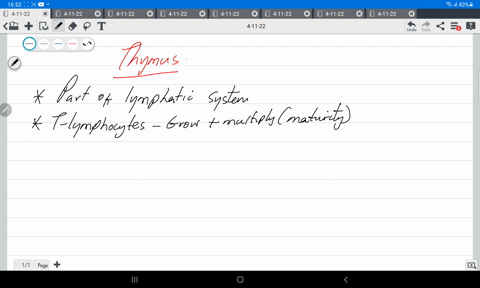 16:52
43%
4-11-22 4-11-22 4-11-22 4-11-22 4-11-22 4-11-22 4-11-22 4-11-22
4-11-22
Undo Redo
Thymus
* Part of lymphatic system
* T-lymphocytes - Grow + multiply (maturity)
1/1 Page